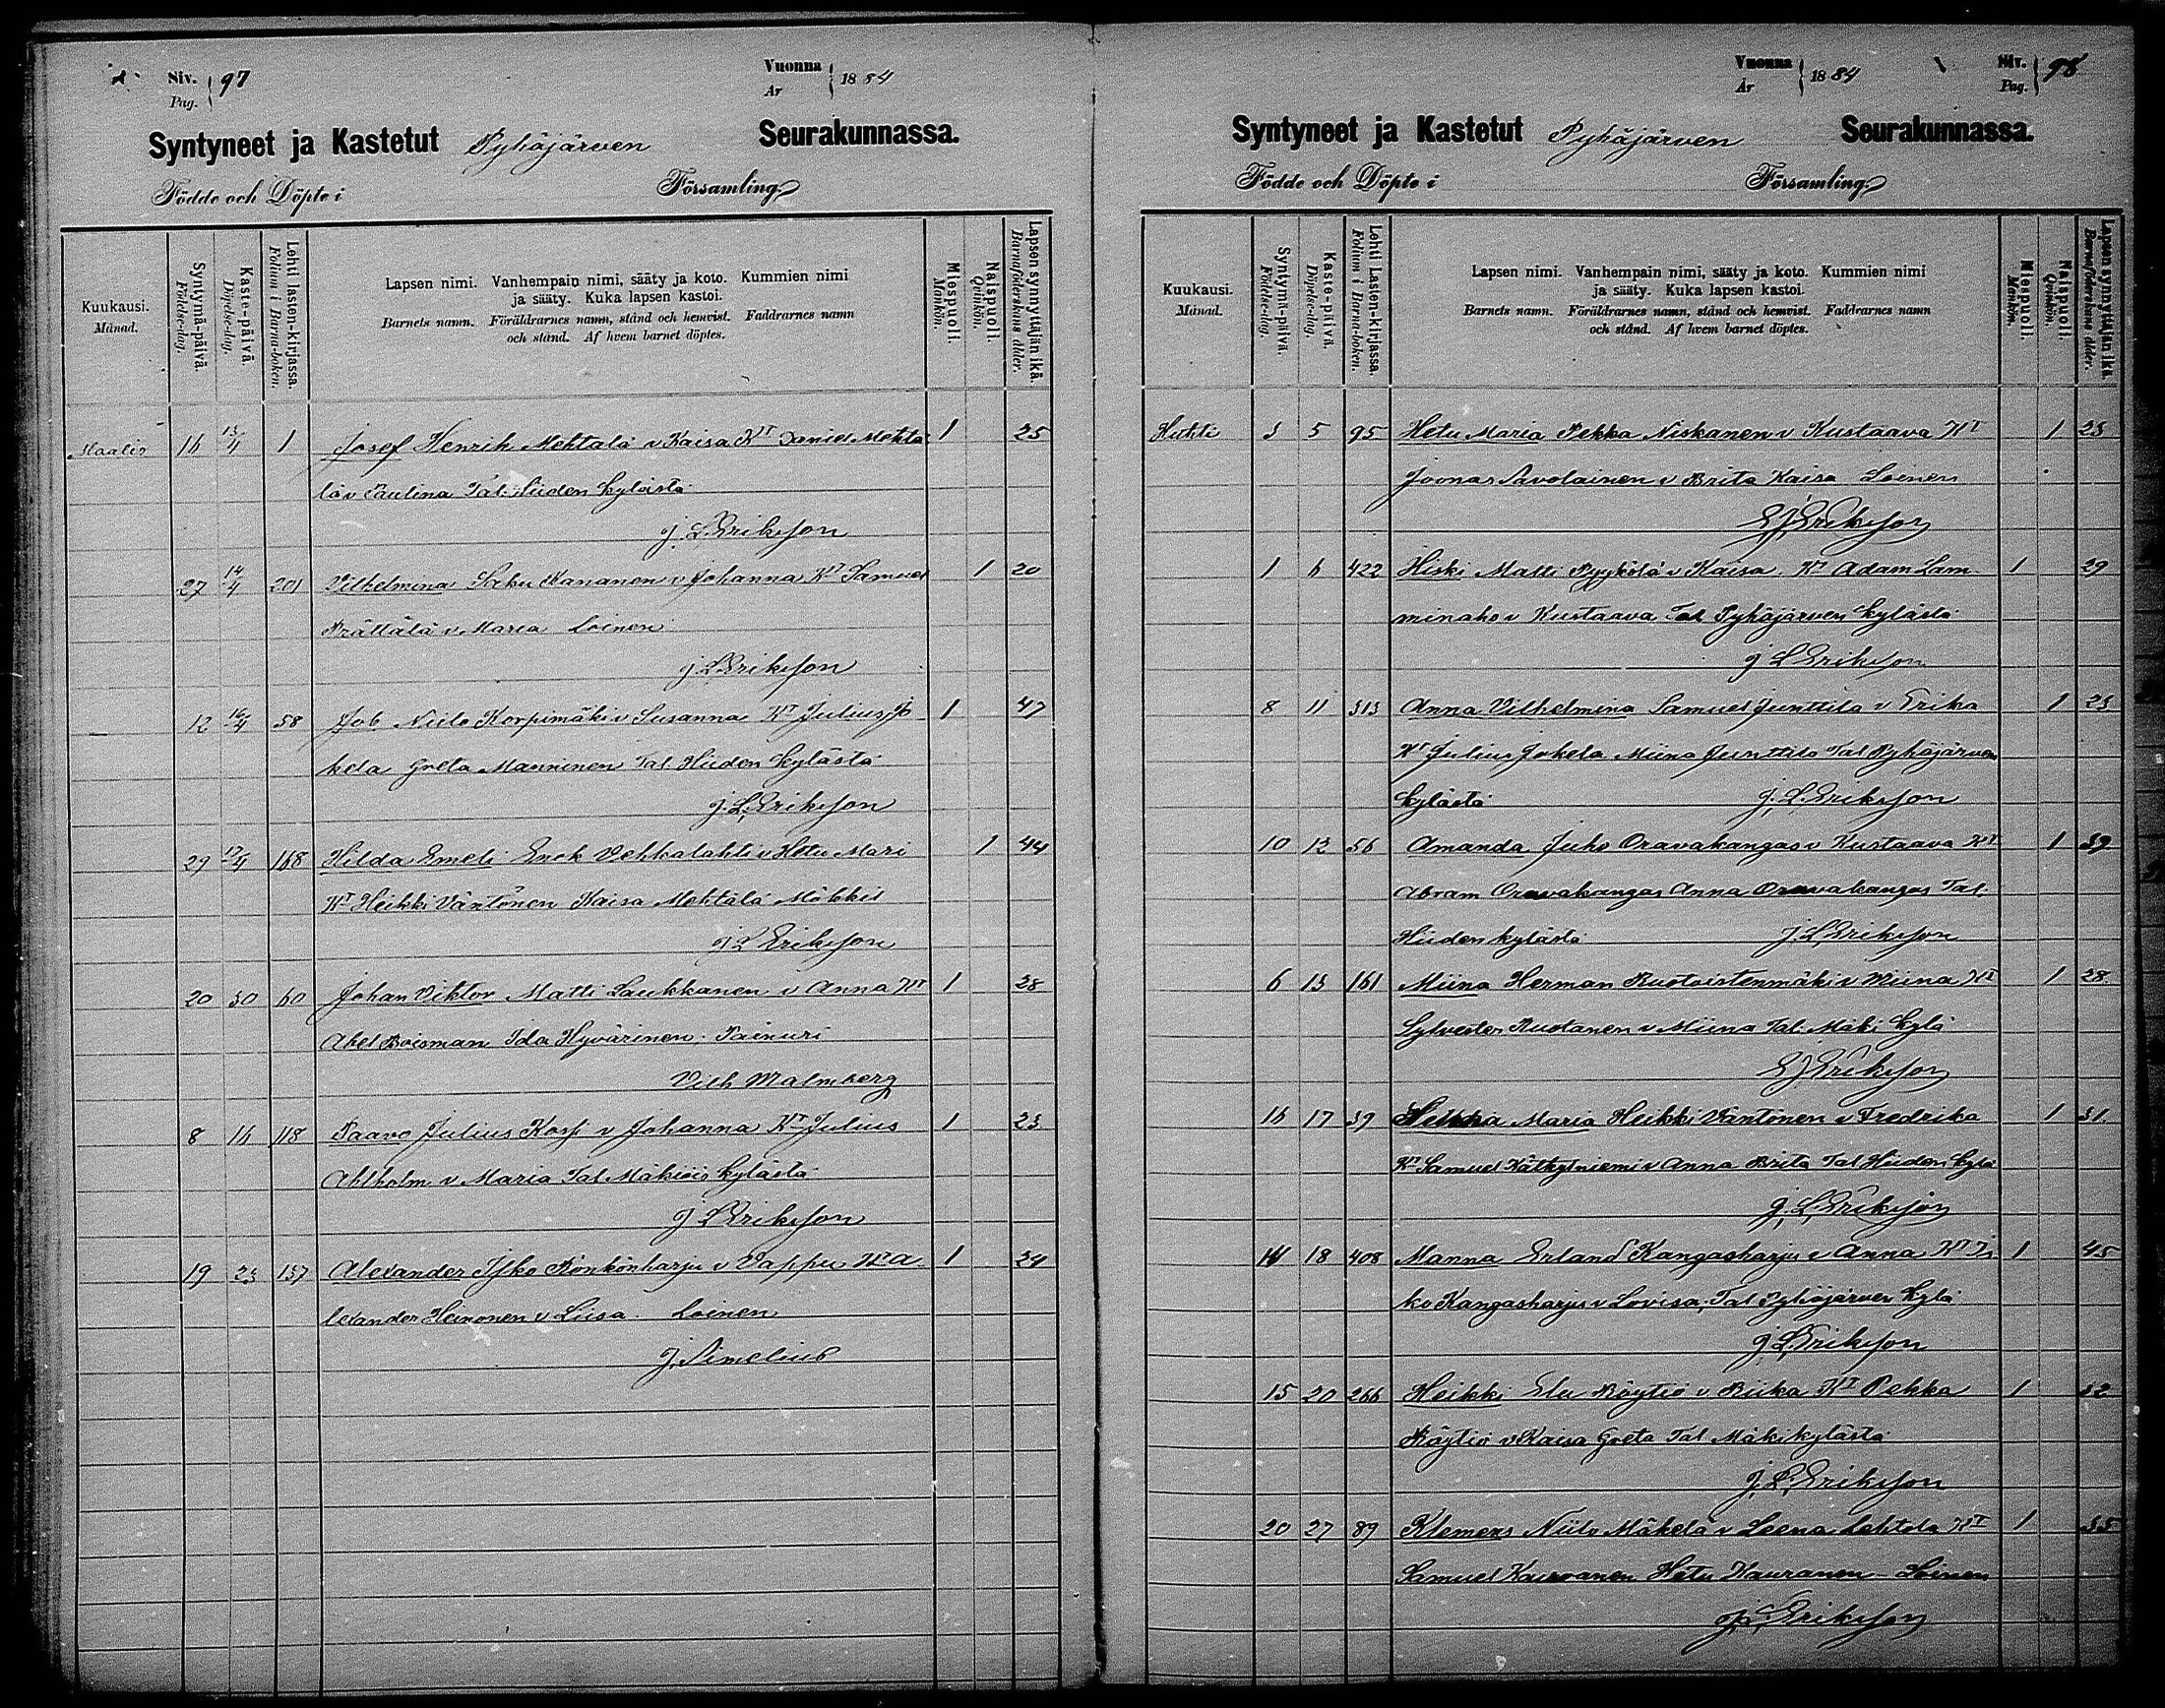 Niv. Pag. 97
Vuonna År 1884
Syntyneet ja Kastetut Pyhäjärven Seurakunnassa.
Födde och Döpte i Församling.
Kuukausi. Månad.
Syntymä-päivä. Födelse-dag.
Kaste-päivä. Döpelse-dag.
Lehti lasten-kirjassa. Folium i Barna-boken.
Lapsen nimi. Vanhempain nimi, sääty ja koto. Kummien nimi
ja sääty. Kuka lapsen kastoi.
Barnets namn. Föräldrarnes namn, stånd och hemvist. Faddrarnes namn
och stånd. Af hvem barnet döptes.
Miespuoli. Mankön.
Naispuoli. Qvinkön.
Lapsen synnyttäjän ikä. Barnaföderskans ålder.
Maalis 16 13/4 1 Josef Henrik Mehtälä v Kaisa Kt Daniel Mehtä 1 25
lä v Paulina Tal. Hiiden kylästä
J. L. Erikson
27 14/4 201 Vilhelmina Saku Kananen v Johanna Kt Samuel 1 20
Prättälä v Maria Loinen
J. L. Erikson
12 16/4 58 Job Niilo Korpimäki v Susanna Kt Julius Jo 1 47
kela Greta Manninen Tal. Hiiden kylästä
J. L. Erikson
29 17/4 168 Hilda Emeli Erek Vehkalahti v Hetu Mari 1 44
Kt Heikki Väntönen Kaisa Mehtälä Mökkil
J L Erikson
20 30 60 Johan Viktor Matti Laukkanen v Anna Kt 1 28
Abel Boisman Ida Hyvärinen Painuri
Vilh Malmberg
8 16 118 Paavo Julius Korp v Johanna Kt Julius 1 23
Ahlholm v Maria Tal Mäkiöis kylästä
J L Erikson
19 23 137 Alexander Isko Rönkönharju v Vappu Kt A 1 24
lexander Heinonen v Liisa Loinen
J. Simelius
Vuonna År 1884
Niv. Pag. 98
Syntyneet ja Kastetut Pyhäjärven Seurakunnassa.
Födde och Döpte i Församling.
Kuukausi. Månad.
Syntymä-päivä. Födelse-dag.
Kaste-päivä. Döpelse-dag.
Lehti Lasten-kirjassa. Folium i Barna-boken.
Lapsen nimi. Vanhempain nimi, sääty ja koto. Kummien nimi
ja sääty. Kuka lapsen kastoi.
Barnets namn. Föräldrarnes namn, stånd och hemvist. Faddrarnes namn
och stånd. Af hvem barnet döptes.
Miespuoli. Mankön.
Naispuoli. Qvinkön.
Lapsen synnyttäjän ikä. Barnaföderskans ålder.
Huhti 3 5 95 Hetu Maria Pekka Niskanen v Kustaava Kt 1 25
Joonas Savolainen v Brita Kaisa Loinen
Erikson
1 6 422 Hiski Matti Pyykölä v Kaisa Kt Adam Lam 1 29
minaho v Kustaava Tal Pyhäjärven kylästä
J L Erikson
8 11 313 Anna Vilhelmina Samuel Junttila v Erika 1 23
Kt Julius Jokela Miina Junttila Tal Pyhäjärven
kylästä J. L. Erikson
10 13 56 Amanda Juho Oravakangas v Kustaava Kt 1 39
Abram Oravakangas Anna Oravakangas Tal.
Hiiden kylästä J. L. Erikson
6 13 161 Miina Herman Ruotoistenmäki v Miina Kt 1 28.
Sylvester Ruotanen v Miina Tal. Mäki kylä
Erikson
16 17 39 Maria Heikki Väntönen v Fredrika 1 31.
Kt Samuel Kätkytniemi v Anna Brita Tal Hiiden kylä
J. L. Erikson
14 18 408 Manna Erland Kangasharju v Anna Kt Is 1 45
ko Kangasharju v Lovisa, Tal Pyhäjärven kylä
J L Erikson
15 20 266 Heikki Elu Röytiö v Riika Kt Pekka 1 32
Röytiö v Kaisa Greta Tal Mäkikylästä
J. L. Erikson
20 27 89 Klemens Niilo Mäkelä v Leena Lehtola Kt 1 35
Samuel Kauranen Hetu Kauranen - Loinen
J. L. Erikson